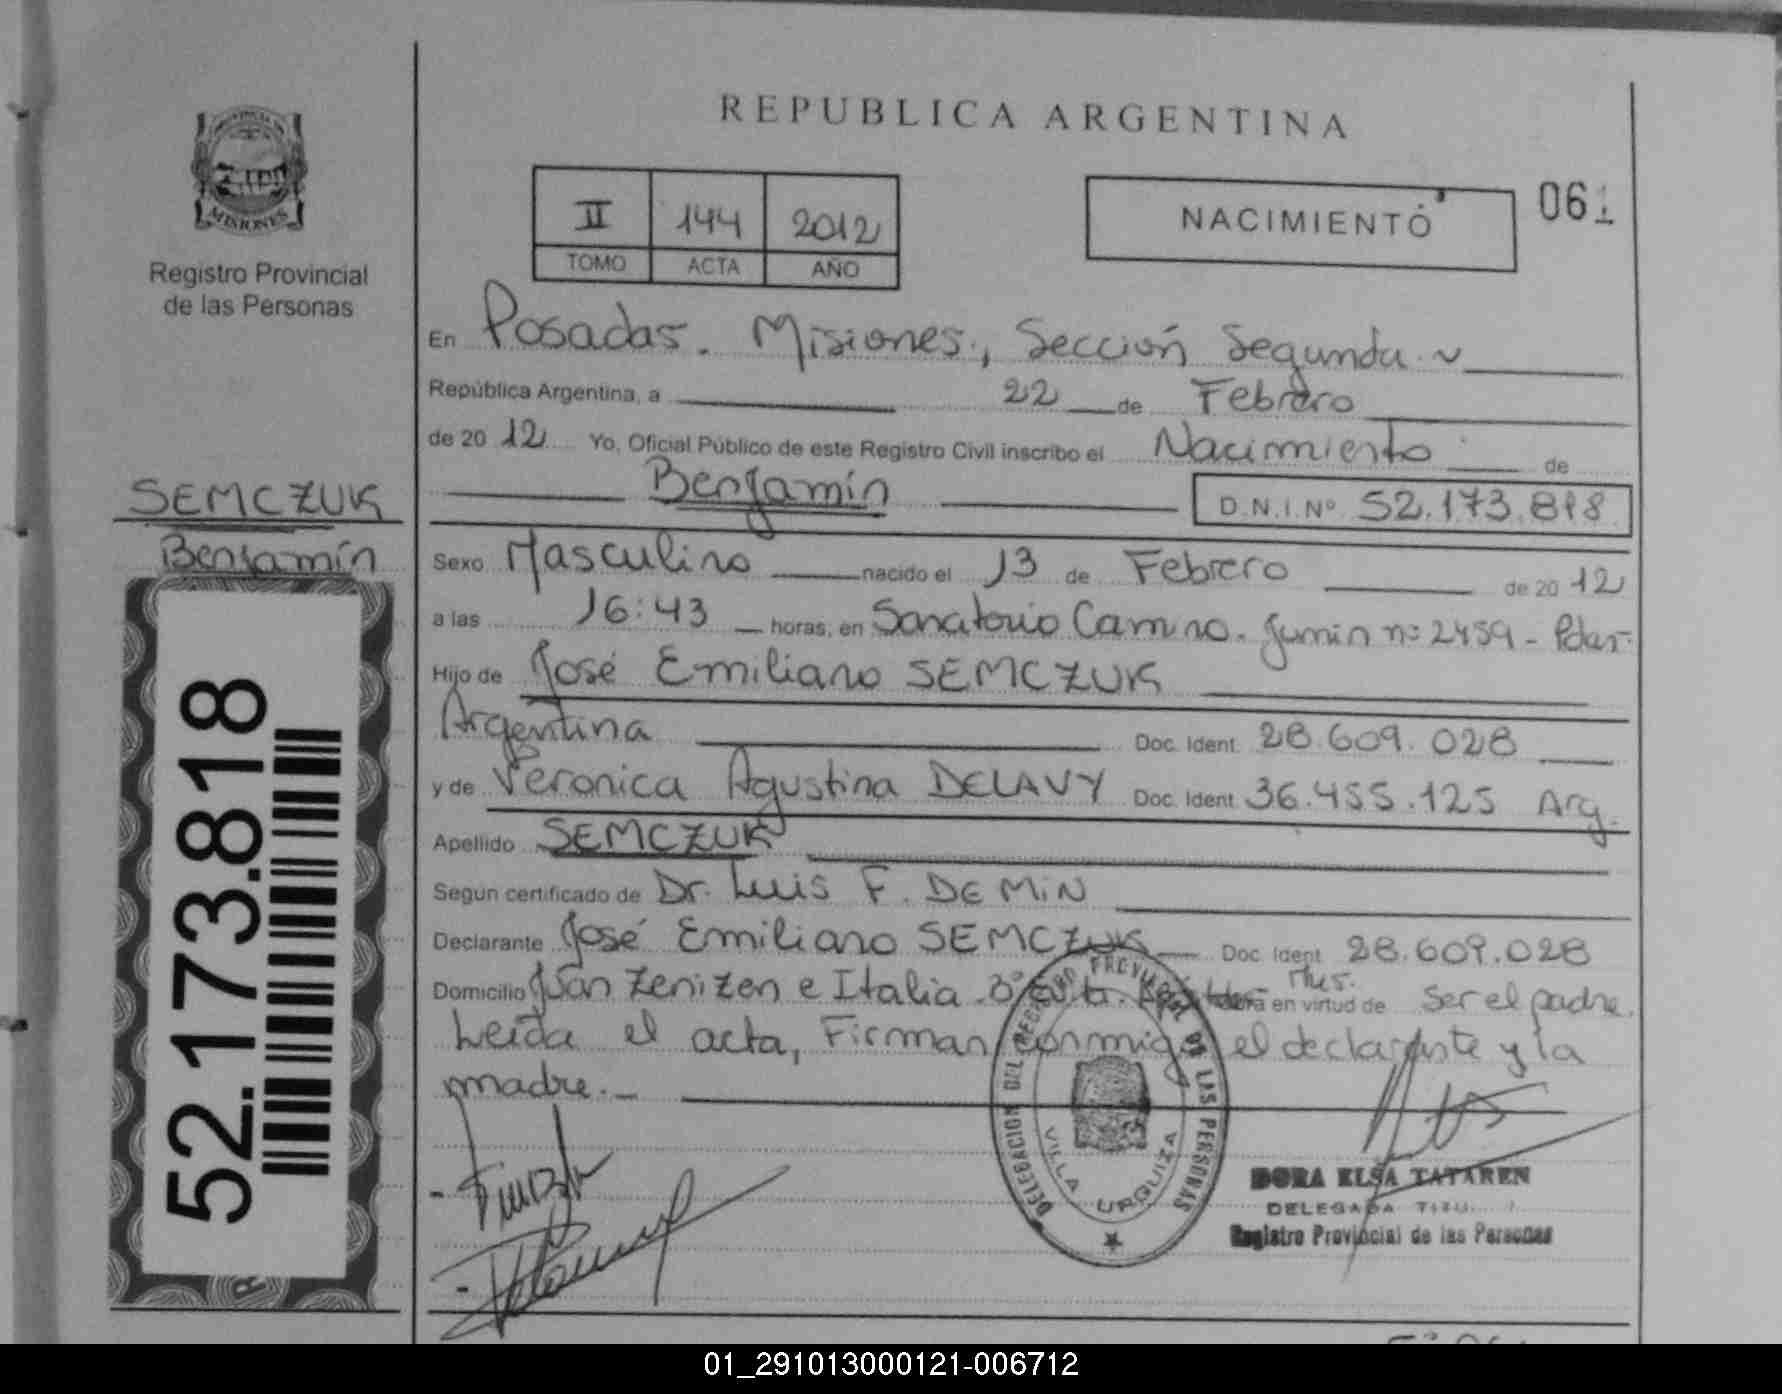 REPUBLICA ARGENTINA
MISIONES
Registro Provincial
de las Personas
II 144 2012
TOMO ACTA AÑO
NACIMIENTO
061
En Posadas. Misiones, Sección Segunda.
República Argentina, a 22 de Febrero
de 20 12 Yo, Oficial Público de este Registro Civil inscribo el Nacimiento de
Benjamín D.N.I.Nº 52.173.818
SEMCZUK
Benjamín
52.173.818
Sexo Masculino nacido el 13 de Febrero de 20 12
a las 16:43 horas, en Sanatorio Camino. Junin nº 2459 - Pdas.
Hijo de José Emiliano SEMCZUK
Argentina Doc. Ident. 28.609.028
y de Veronica Agustina DELAVY Doc. Ident. 36.455.125 Arg.
Apellido SEMCZUK
Según certificado de Dr. Luis F. DE MIN
Declarante José Emiliano SEMCZUK Doc. Ident. 28.609.028
Domicilio Juan Zenizen e Italia Mns. en virtud de Ser el padre.
Leida el acta, Firman conmigo el declarante y la
madre.
DELEGACION DEL REGISTRO PROVINCIAL DE LAS PERSONAS
VILLA URQUIZA
DORA ELSA TATAREN
DELEGADA
Registro Provincial de las Personas
01_291013000121-006712